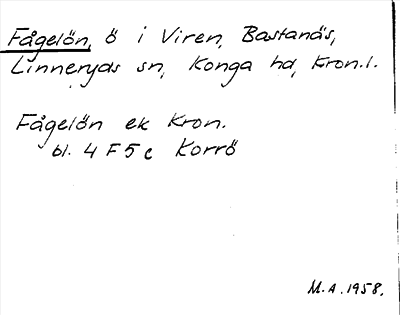 Fågelön, ö i Viren, Bastanäs,
Linneryds sn, Konga hd, Kron.l.
Fågelön ek Kron.
bl. 4 F 5 c Korrö
M.A. 1958.